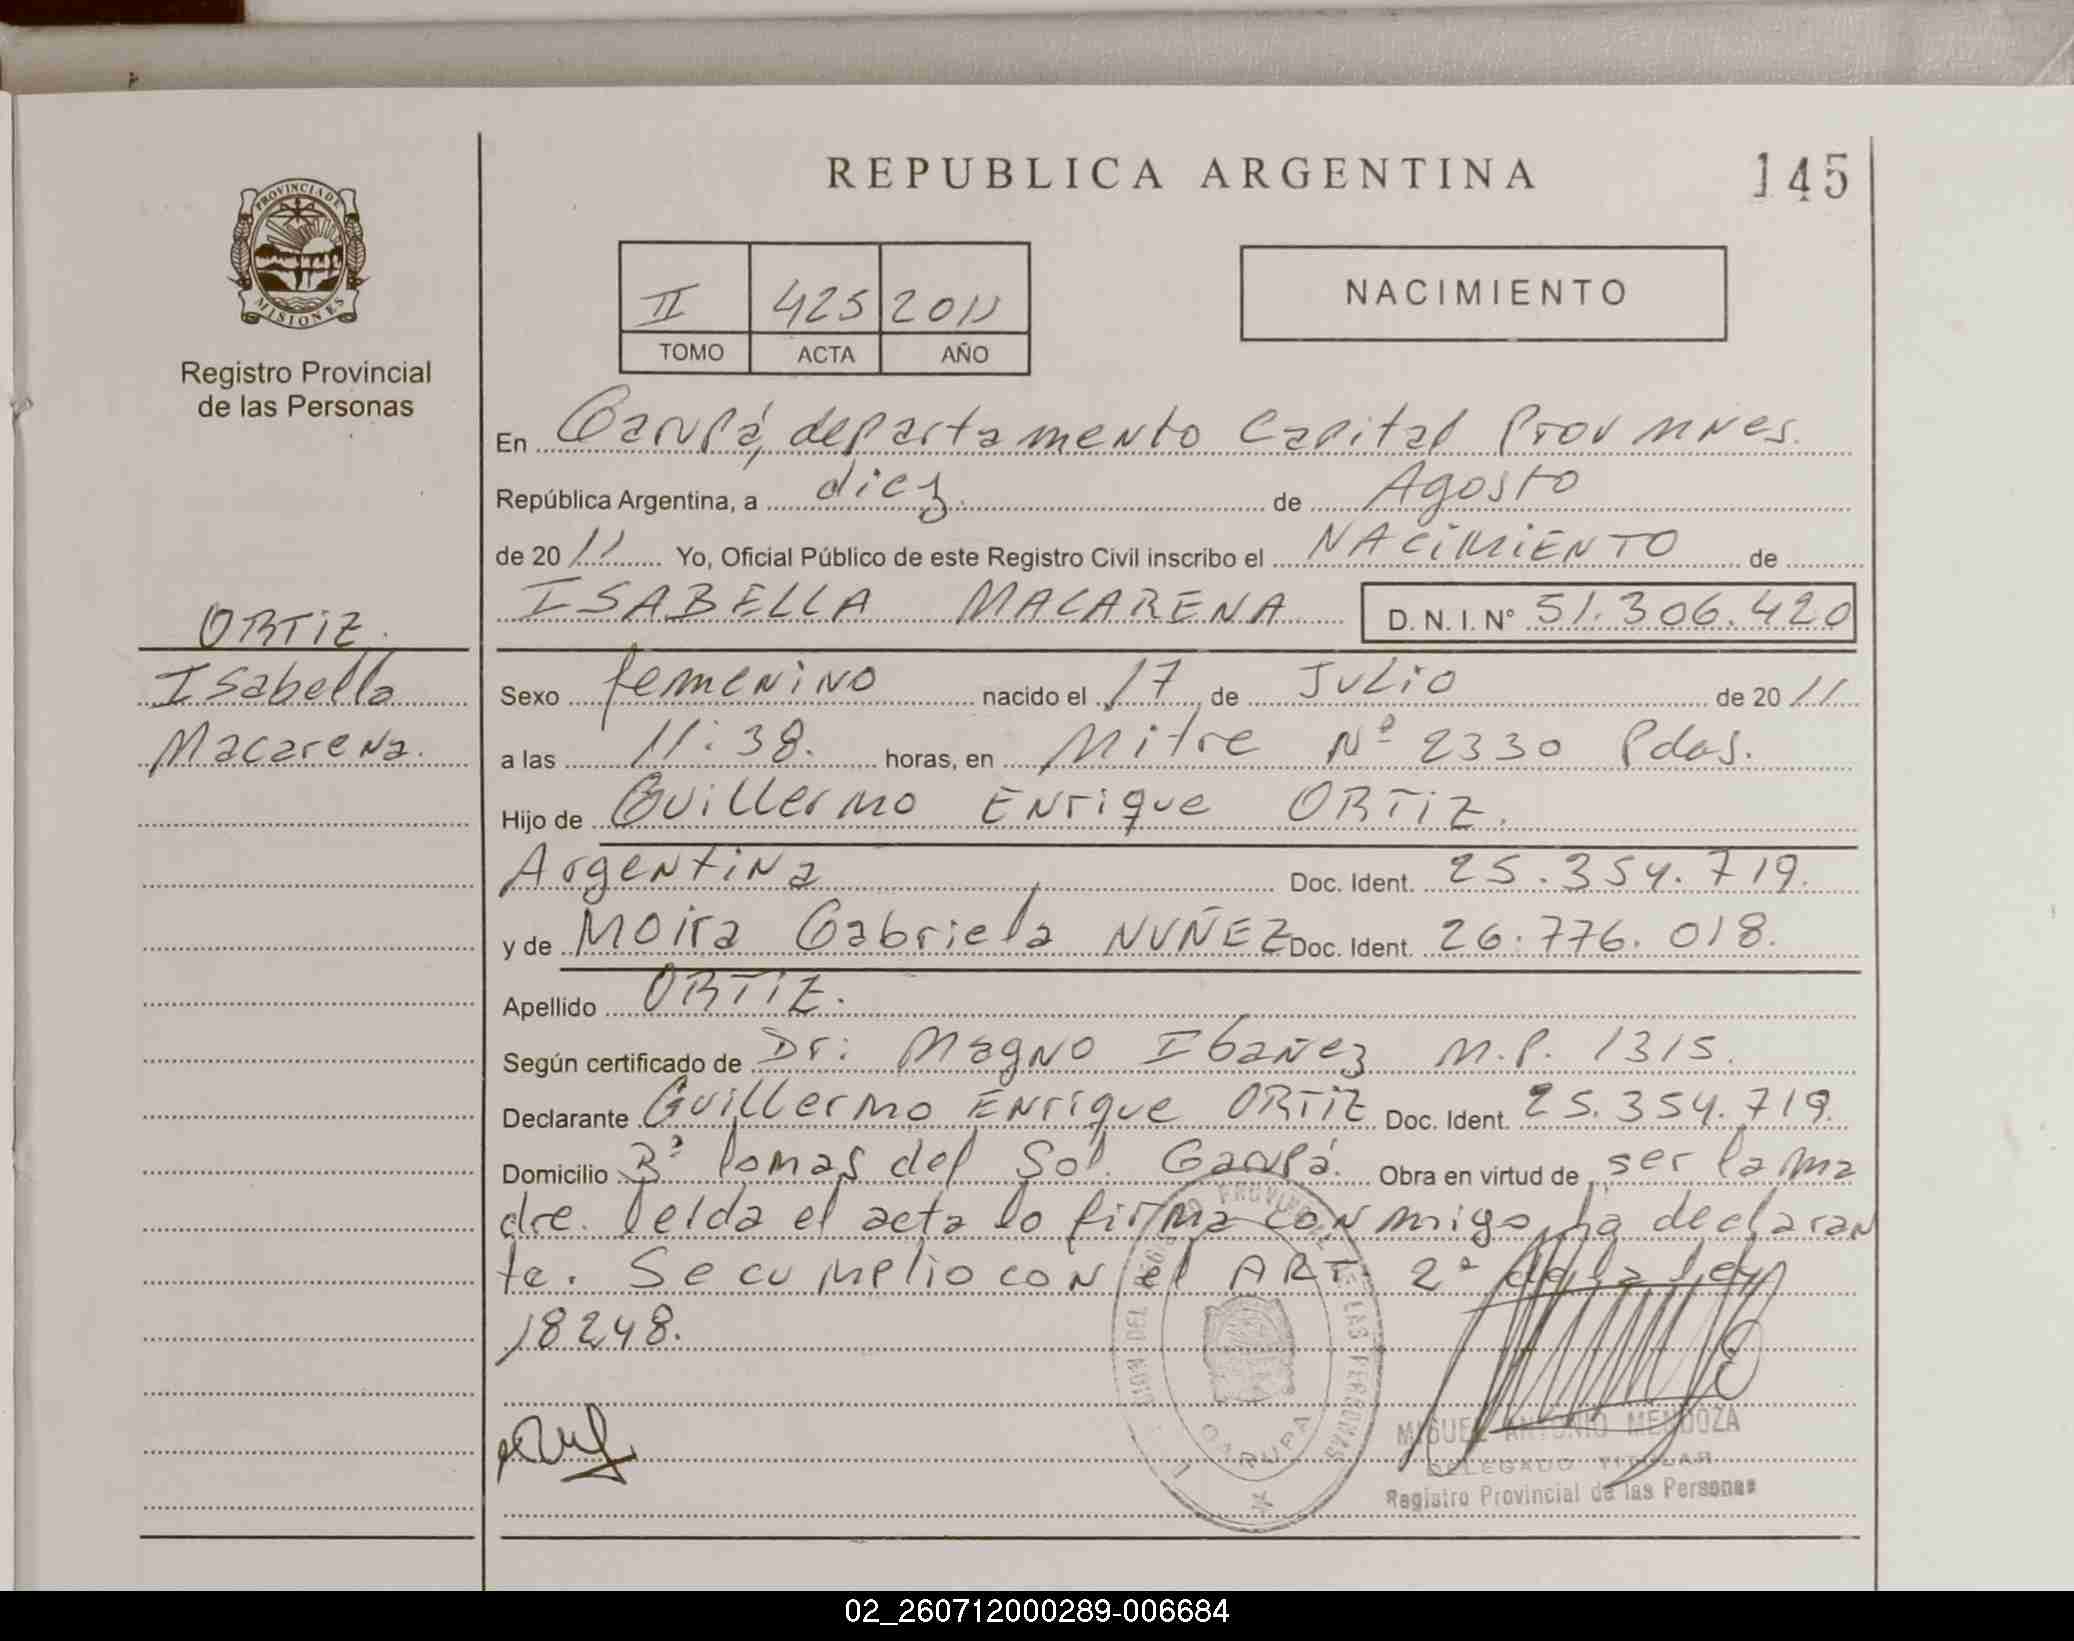 REPUBLICA ARGENTINA
145
PROVINCIA DE
MISIONES
Registro Provincial
de las Personas
II 425 2011
TOMO ACTA AÑO
NACIMIENTO
En Garupá, departamento Capital Prov
República Argentina, a diez. de Agosto
de 20 11 Yo, Oficial Público de este Registro Civil inscribo el NACIMIENTO de
ISABELLA MACARENA D. N. I. N° 51.306.420
ORTIZ.
Isabella
Macarena.
Sexo femenino nacido el 17 de Julio de 20 11
a las 11:38. horas, en Mitre Nº 2330 Pdas.
Hijo de Guillermo Enrique ORTIZ.
Argentina Doc. Ident. 25.354.719.
y de Moira Gabriela NUÑEZ Doc. Ident. 26.776.018.
Apellido ORTIZ.
Según certificado de Dr: Magno Ibañez M.P. 1315.
Declarante Guillermo Enrique ORTIZ Doc. Ident. 25.354.719.
Domicilio Bº lomas del Sol. Garupá. Obra en virtud de ser la ma
dre. leida el acta lo firma conmigo, la declaran
te. Se cumplio con el ART. 2ª de la ley
18248.
REGISTRO PROVINCIAL DE LAS PERSONAS
GARUPA
MIGUEL ANTONIO MENDOZA
DELEGADO TITULAR
Registro Provincial de las Personas
02_260712000289-006684